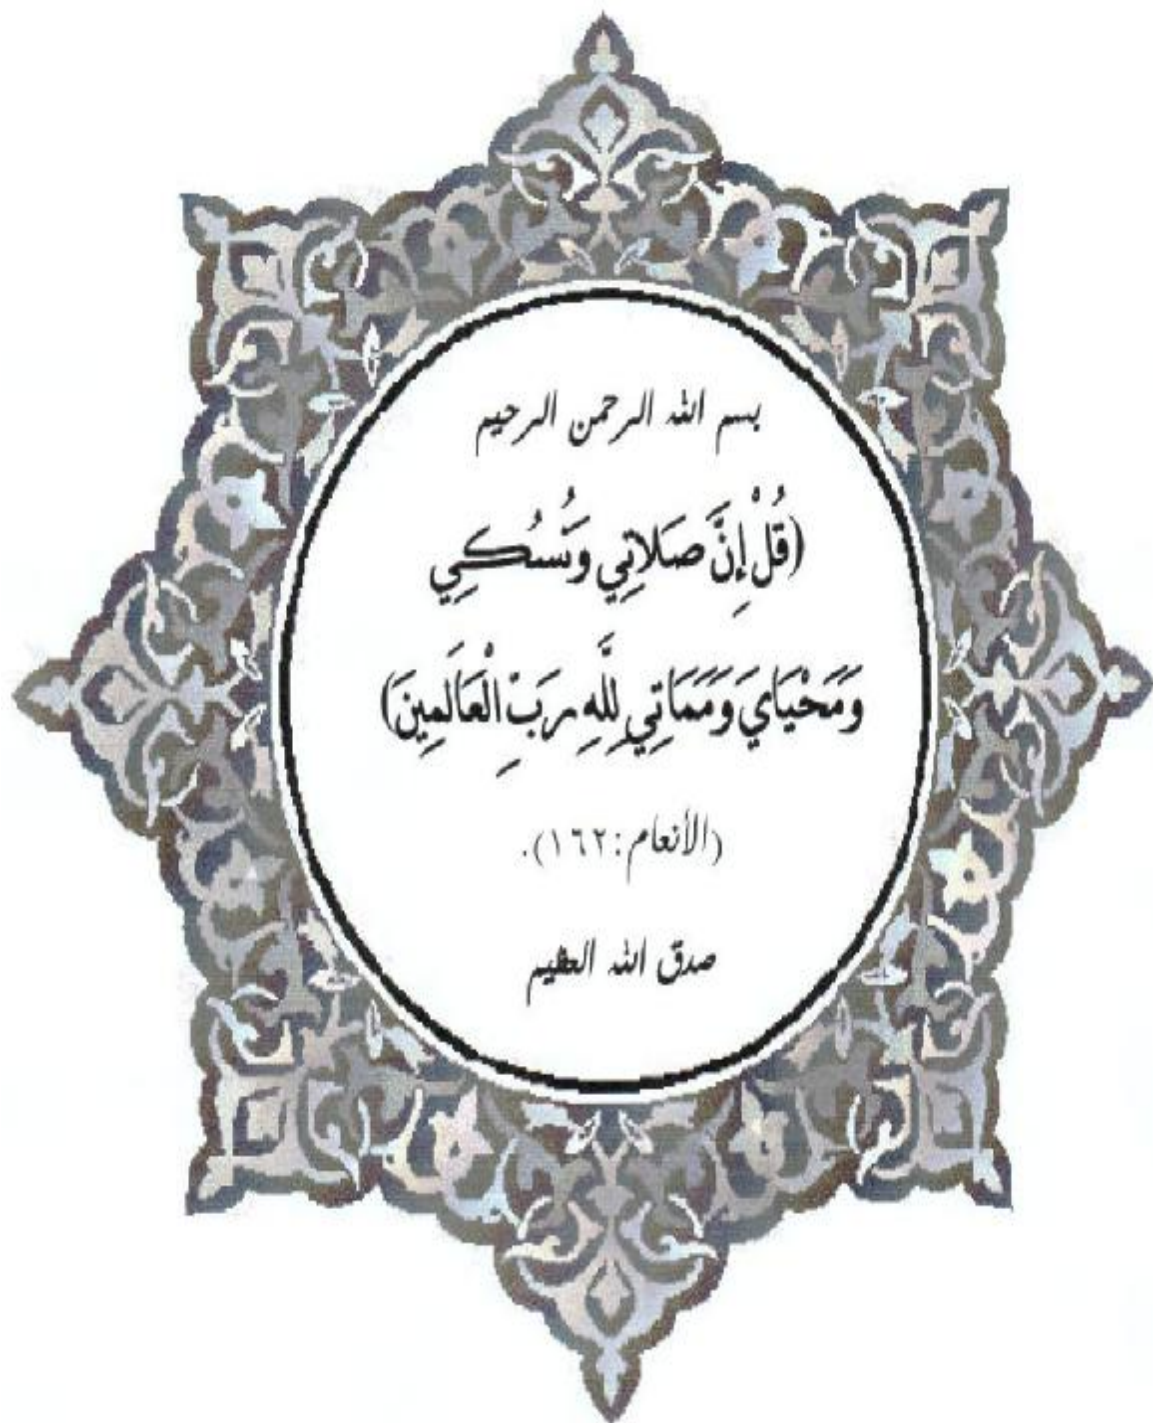 بسم الله الرحمن الرحيم
(قُلْ إِنَّ صَلَاتِي وَنُسُكِي
وَمَحْيَايَ وَمَمَاتِي لِلَّهِ رَبِّ الْعَالَمِينَ)
(الأنعام: ١٦٢).
صدق الله العظيم